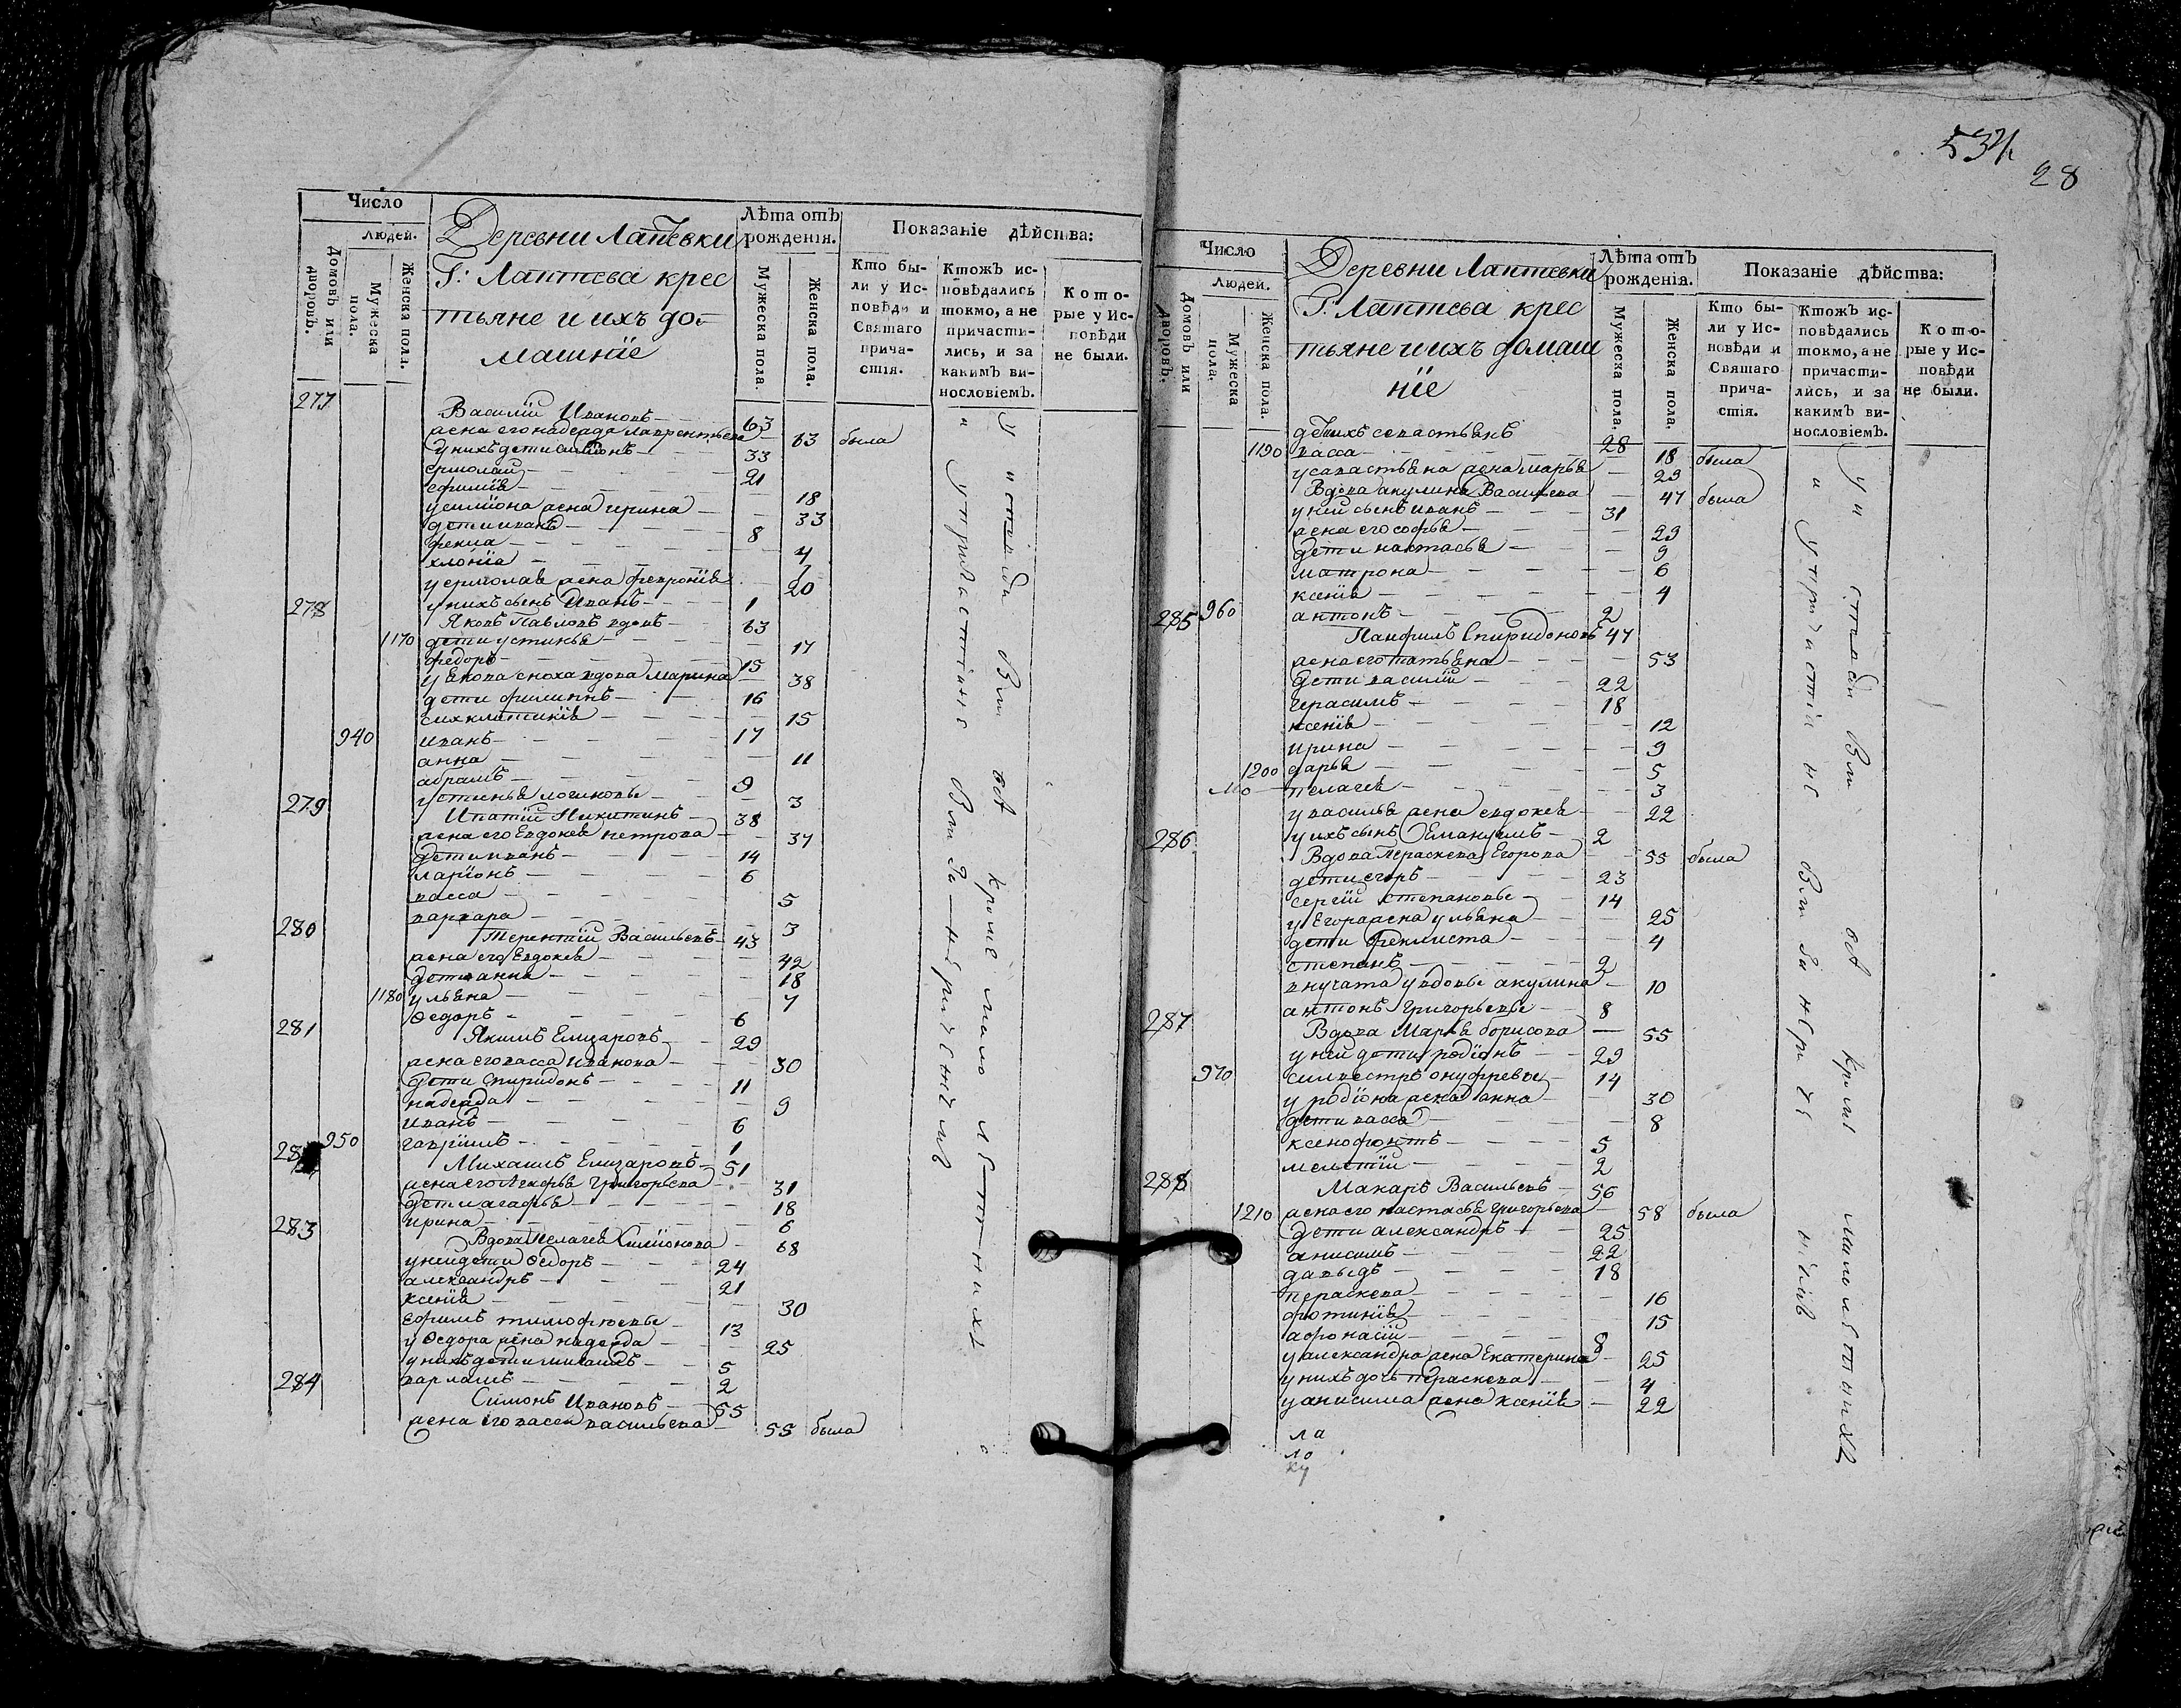 Число
Людей.
Домовъ или дворовъ.
Мужеска пола.
Женска пола.
Деревни Лаптевки
Г: Лаптева крес
тьяне и ихъ до
машніе
Лѣта отъ рожденія.
Мужеска пола.
Женска пола.
Показаніе дѣйства:
Кто были у Исповѣди и Святаго причастія.
Ктожъ исповѣдались токмо, а не причастились, и за какимъ винословіемъ.
Которые у Исповѣди не были.
277 Василій Ивановъ 63
жена его надежда лаврентьева 63 была
у нихъ дети симіонъ 33
ермолай 21
ефимія 18
у симіона жена ирина 33
дети иванъ 8
фекла 4
хлонія 1
у ермолая жена февронія 20
у нихъ сынъ Иванъ 1
278 Яковъ Павловъ вдовъ 63
1170 дети устинья 17
федоръ 15
у якова сноха вдова Марина 38
дети филиппъ 16
синклитикія 15
940 иванъ 17
анна 11
абрамъ 9
устинья логиновы 3
279 Ипатій Никитинъ 38
жена его Евдокея петрова 37
дети иванъ 14
ларіонъ 6
васса 5
варвара 3
280 Терентій Васильевъ 43
жена его Евдокея 42
дети анна 18
1180 ульяна 7
Ѳедоръ 6
281 Якимъ Елизаровъ 29
жена его васса иванова 30
дети Спиридонъ 11
надежда 9
иванъ 6
950 гавріилъ 1
28 Михаилъ Елизаровъ 51
жена его Агафья Григорьева 31
дети агафья 18
ирина 6
283 Вдова Пелагея Симіонова 68
у ней дети Ѳедоръ 24
александръ 21
ксенія 30
Ефимъ тимофеевы 13
у Ѳедора жена надежда 25
у нихъ дети михаилъ 5
варламъ 2
284 Симонъ Ивановъ 55
жена его васса васильева 55 была
у исповѣди вси
и у причастія не
534
28
Число
Людей.
Домовъ или дворовъ.
Мужеска пола.
Женска пола.
Деревни Лаптевки
Г: Лаптева крес
тьяне и ихъ домаш
ніе
Лѣта отъ рожденія.
Мужеска пола.
Женска пола.
Показаніе дѣйства:
Кто были у Исповѣди и Святаго причастія.
Ктожъ исповѣдались токмо, а не причастились, и за какимъ винословіемъ.
Которые у Исповѣди не были.
севастьянъ 28
1190 васса 18 была
у савастьяна жена марья 23
Вдова акулина Васильева 47 была
у ней сынъ иванъ 31
жена его софья 29
дети настасья 9
матрона 6
ксенія 4
960 антонъ 2
285 Панфилъ Спиридоновъ 47
жена его татьяна 53
дети василій 22
герасимъ 18
ксенія 12
ирина 9
1200 дарья 5
пелагея 3
у василья жена евдокея 22
у ихъ сынъ Емануилъ 2
286 Вдова Параскева Егорова 55 была
дети егоръ 23
сергій степановы 14
у Егора жена ульяна 25
дети Феклиста 4
степанъ 2
внучата у вдовы акулина 10
антонъ Григорьевы 8
287 Вдова Марья борисова 55
у ней дети родіонъ 29
970 силвестръ онуфревы 14
у родіона жена анна 30
дети васса 8
ксенофонтъ 5
мелетій 2
288 Макаръ Васильевъ 56
1210 жена его настасья григорьева 58 была
дети александръ 25
анисимъ 22
давыдъ 18
параскева 16
фотинія 15
афонасій 8
у александра жена Екатерина 25
у нихъ дочь параскева 4
у анисима жена ксенія 22
ла
ло
ку